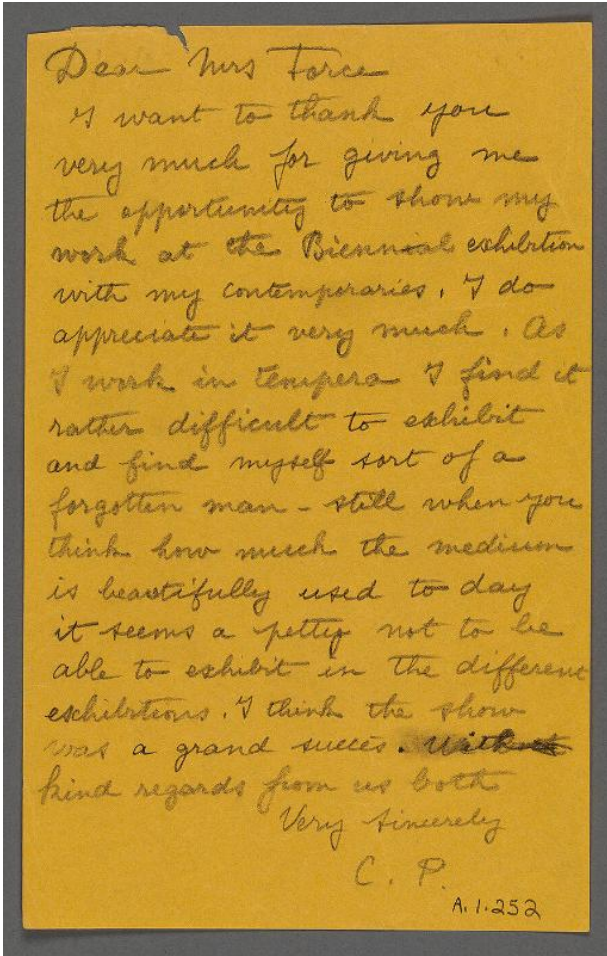 Dear Mrs Force
I want to thank you
very much for giving me
the opportunity to show my
work at the Biennial exhibition
with my contemporaries. I do
appreciate it very much. As
I work in tempera I find it
rather difficult to exhibit
and find myself sort of a
forgotten man - still when you
think how much the medium
is beautifully used to day
it seems a petty not to be
able to exhibit in the different
exhibitions. I think the show
was a grand succes. With
kind regards from us both
Very sincerely
C. P.
A.1.252